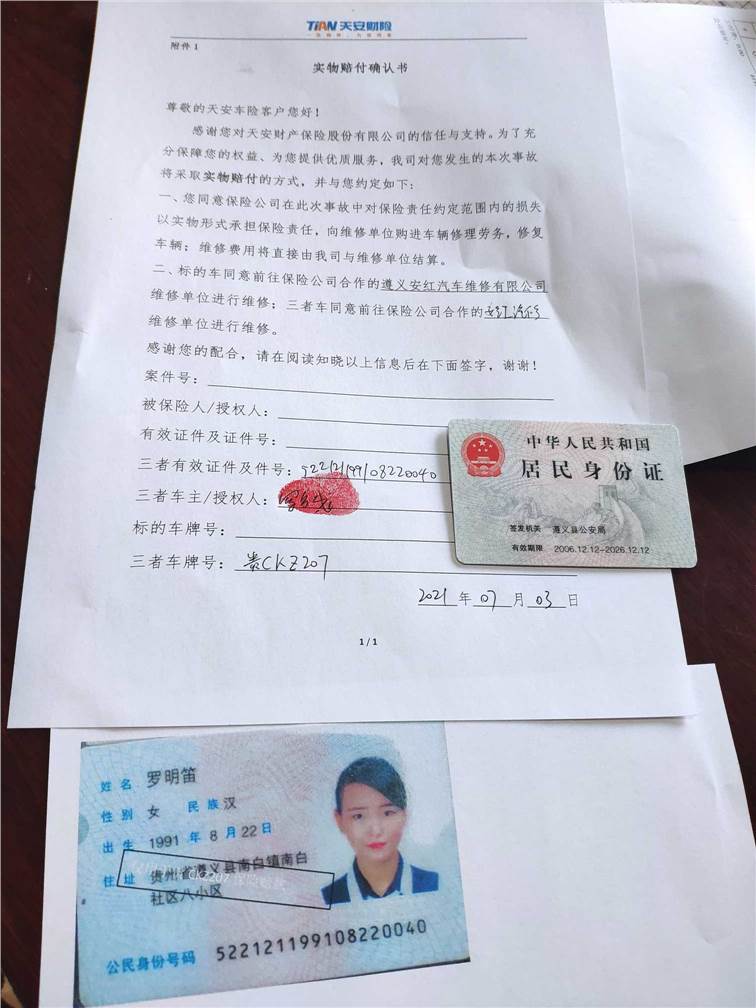 TIAN 天安财险
附件 1
实物赔付确认书
尊敬的天安车险客户您好！
感谢您对天安财产保险股份有限公司的信任与支持。为了充
分保障您的权益、为您提供优质服务，我司对您发生的本次事故
将采取实物赔付的方式，并与您约定如下：
一、您同意保险公司在此次事故中对保险责任约定范围内的损失
以实物形式承担保险责任，向维修单位购进车辆修理劳务，修复
车辆；维修费用将直接由我司与维修单位结算。
二、标的车同意前往保险公司合作的遵义安红汽车维修有限公司
维修单位进行维修；三者车同意前往保险公司合作的
维修单位进行维修。
感谢您的配合，请在阅读知晓以上信息后在下面签字，谢谢！
案件号：
被保险人/授权人：
有效证件及证件号：
三者有效证件及件号：522121199108220040
三者车主/授权人：
标的车牌号：
三者车牌号：贵CKZ207
2021 年 07 月 03 日
1 / 1
中华人民共和国
居民身份证
签发机关 遵义县公安局
有效期限 2006.12.12-2026.12.12
姓名 罗明笛
性别 女 民族 汉
出生 1991 年 8 月 22 日
住址 贵州省遵义县南白镇南白
社区八小区
公民身份号码 522121199108220040